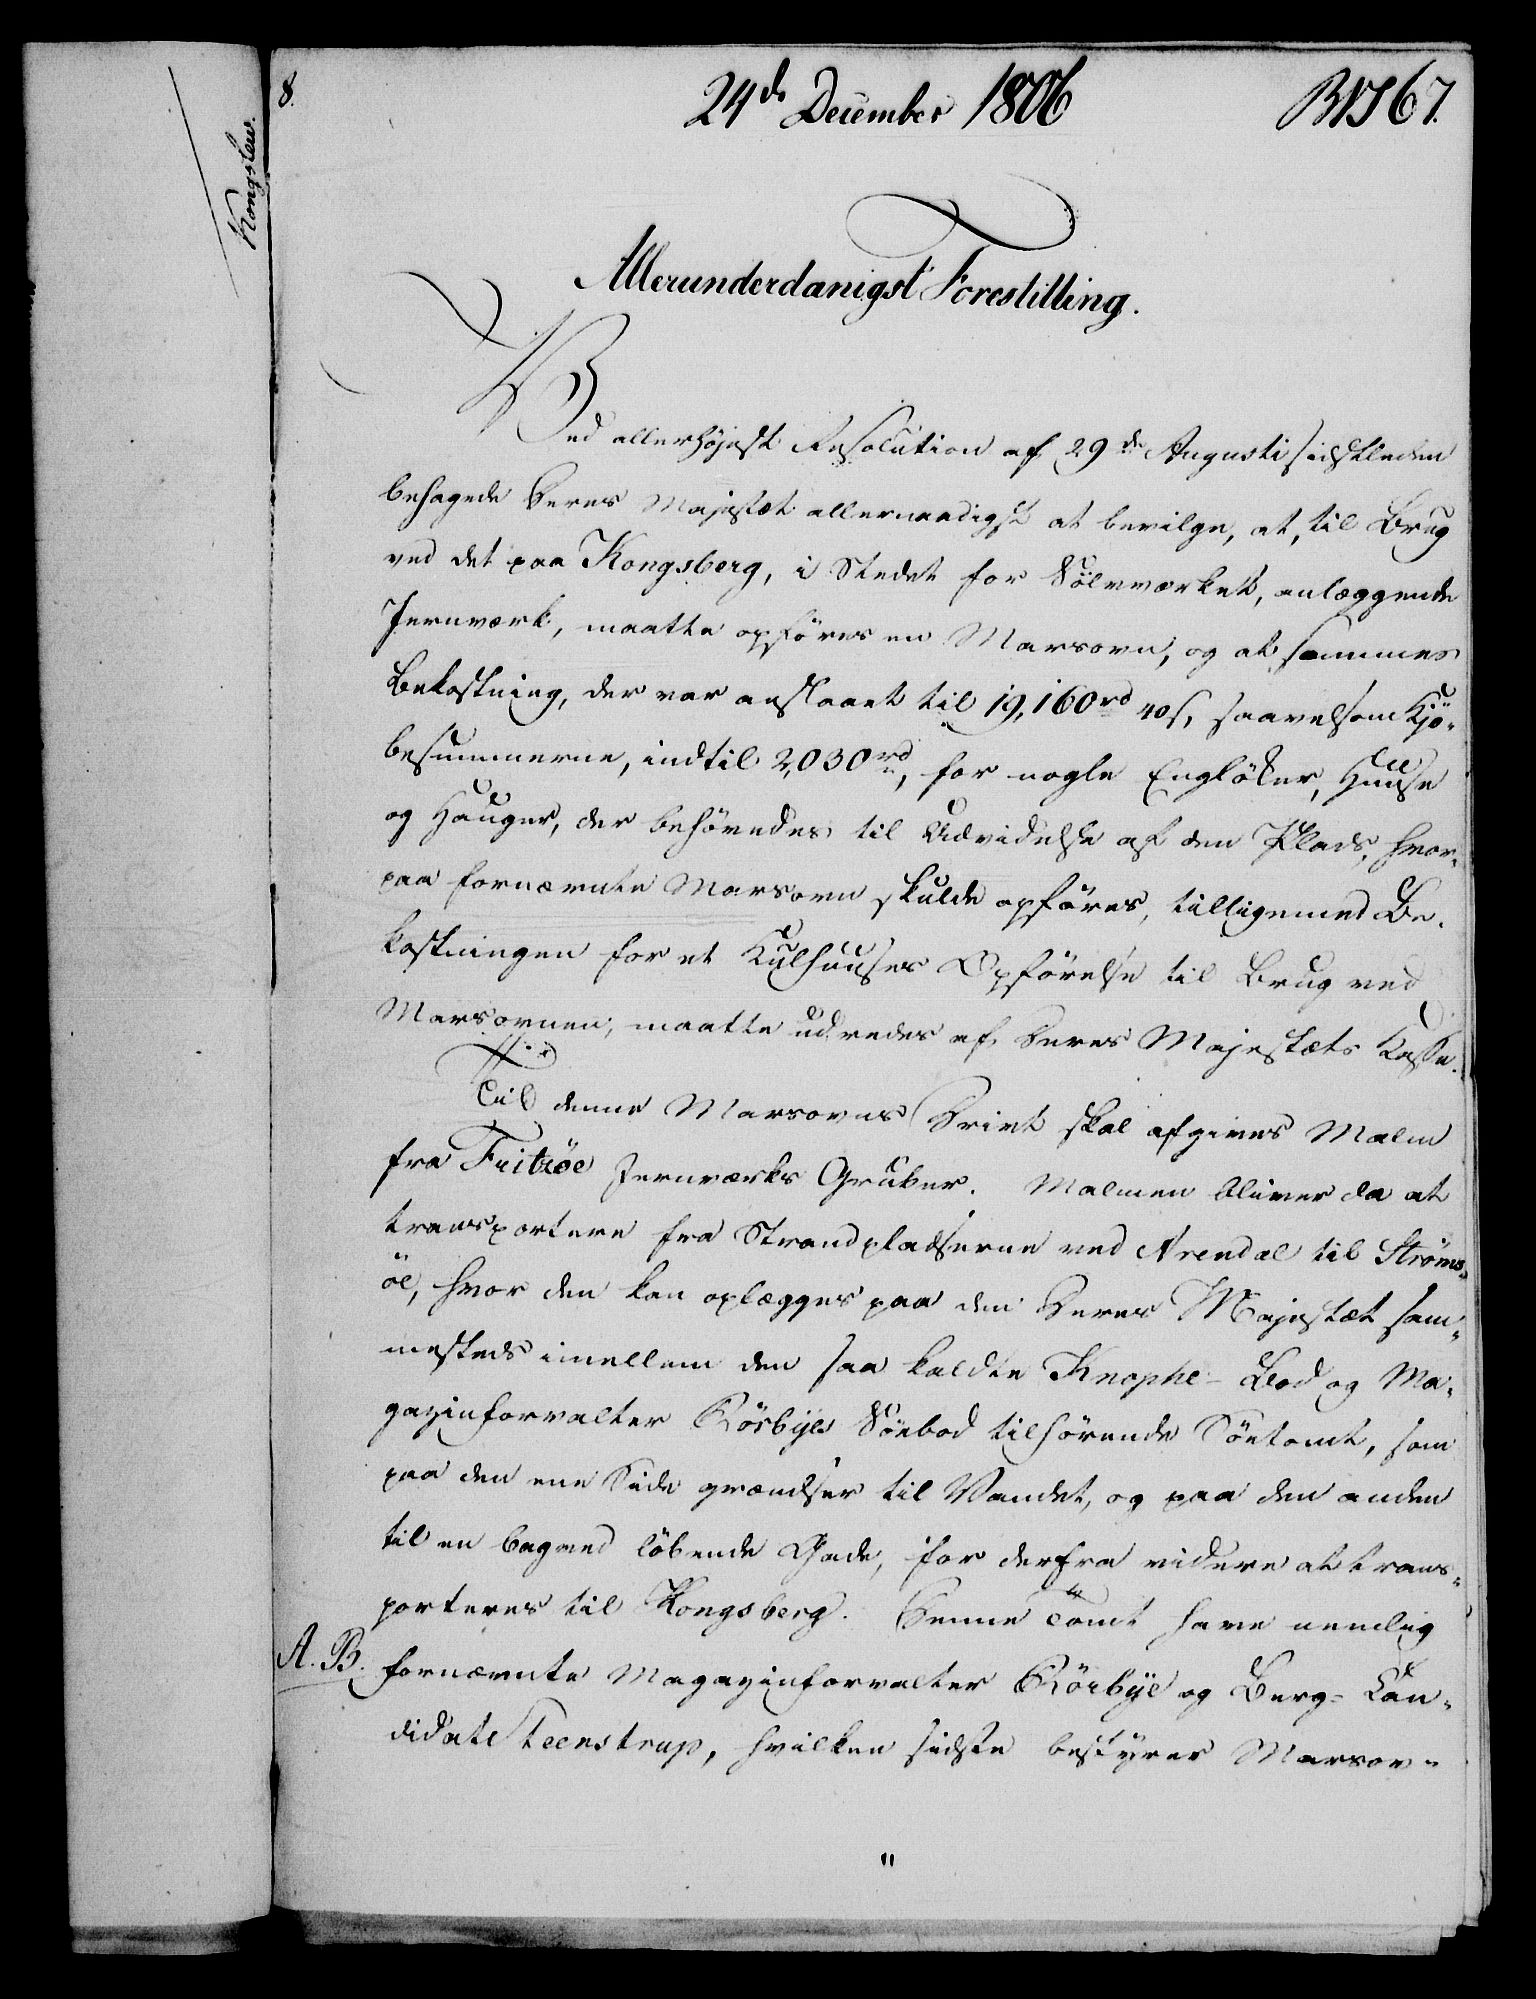 8.
24de December 1806
Kongslew.
Allerunderdanigst Forestilling.
Ved allerhöjest Resolution af 29de Augusti sidstleden
behagede Deres Majestæt allernaadigst at bevilge, at, til Brug
ved det paa Kongsberg, i Stedet for Sölvværket, anlæggende
Jernværk, maatte opföres en Marsovn, og at sammes
Bekostning, der var anslaaet til 19,160rd 40s, saavelsom Kjö-
besummerne, indtil 2,030rd, for nogle Englökker, Huuse
og Hauger, der behövedes til Udvidelse af den Plads, hvor-
paa fornævnte Marsovn skulde opföres, tilligemed Be-
kostningen for et Kulhuuses Opförelse til Brug ved
Marsovnen, maatte udredes af Deres Majestæts Kasse.
Til denne Marsovns Drivt skal afgives Malm
fra Fritzöe Jernværks Gruber. Malmen bliver da at
transportere fra Strandpladserne ved Arendal til Ströms-
öe, hvor den kan oplægges paa den Deres Majestæt sam-
mesteds imellem den saa kaldte Knophe-Bod og Ma-
gazinforvalter Rörbyes Söebod tilhörende Söetomt, som
paa den ene Side grændser til Vandet, og paa den anden
til en bagved löbende Gade, for derfra videre at trans-
porteres til Kongsberg. Denne Tomt have nemlig
A. B. fornævnte Magazinforvalter Rörbye og Berg-Can-
didate Steenstrup, hvilken sidste bestyrer Marsov-
"